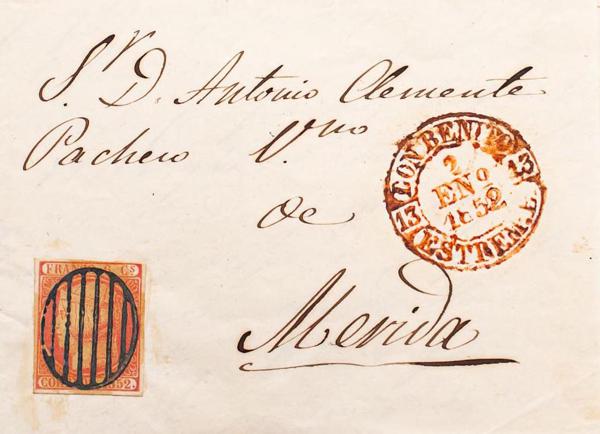 Sr. D. Antonio Clemente
Pacheco V.no
de
Merida
DON BENITO
13 13
2
ENO
1852
ESTREM.
FRANCO 6 Cs
CORREOS 1852.